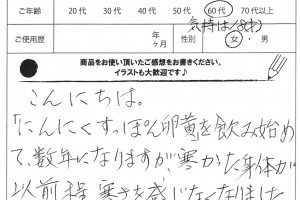 ご年齢 20代 30代 40代 50代 60代 70代以上
気持は18才(?)
ご使用歴 年 ヶ月 女・男
商品をお使い頂いたご感想をお書きください。
イラストも大歓迎です♪
こんにちは。
「にんにくすっぽん卵黄」を飲み始め
て、数年になりますが、寒かった身体が
以前程寒さを感じなくなりました